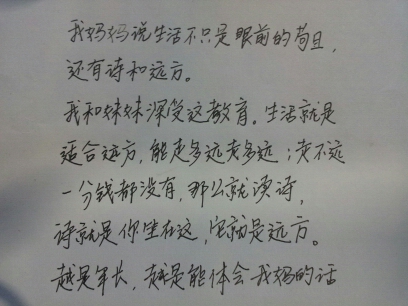 我妈妈说生活不只是眼前的苟且，
还有诗和远方。
我和妹妹深受这教育。生活就是
适合远方，能走多远走多远；走不远
一分钱都没有，那么就读诗，
诗就是你坐在这，它就是远方。
越是年长，越是能体会我妈的话